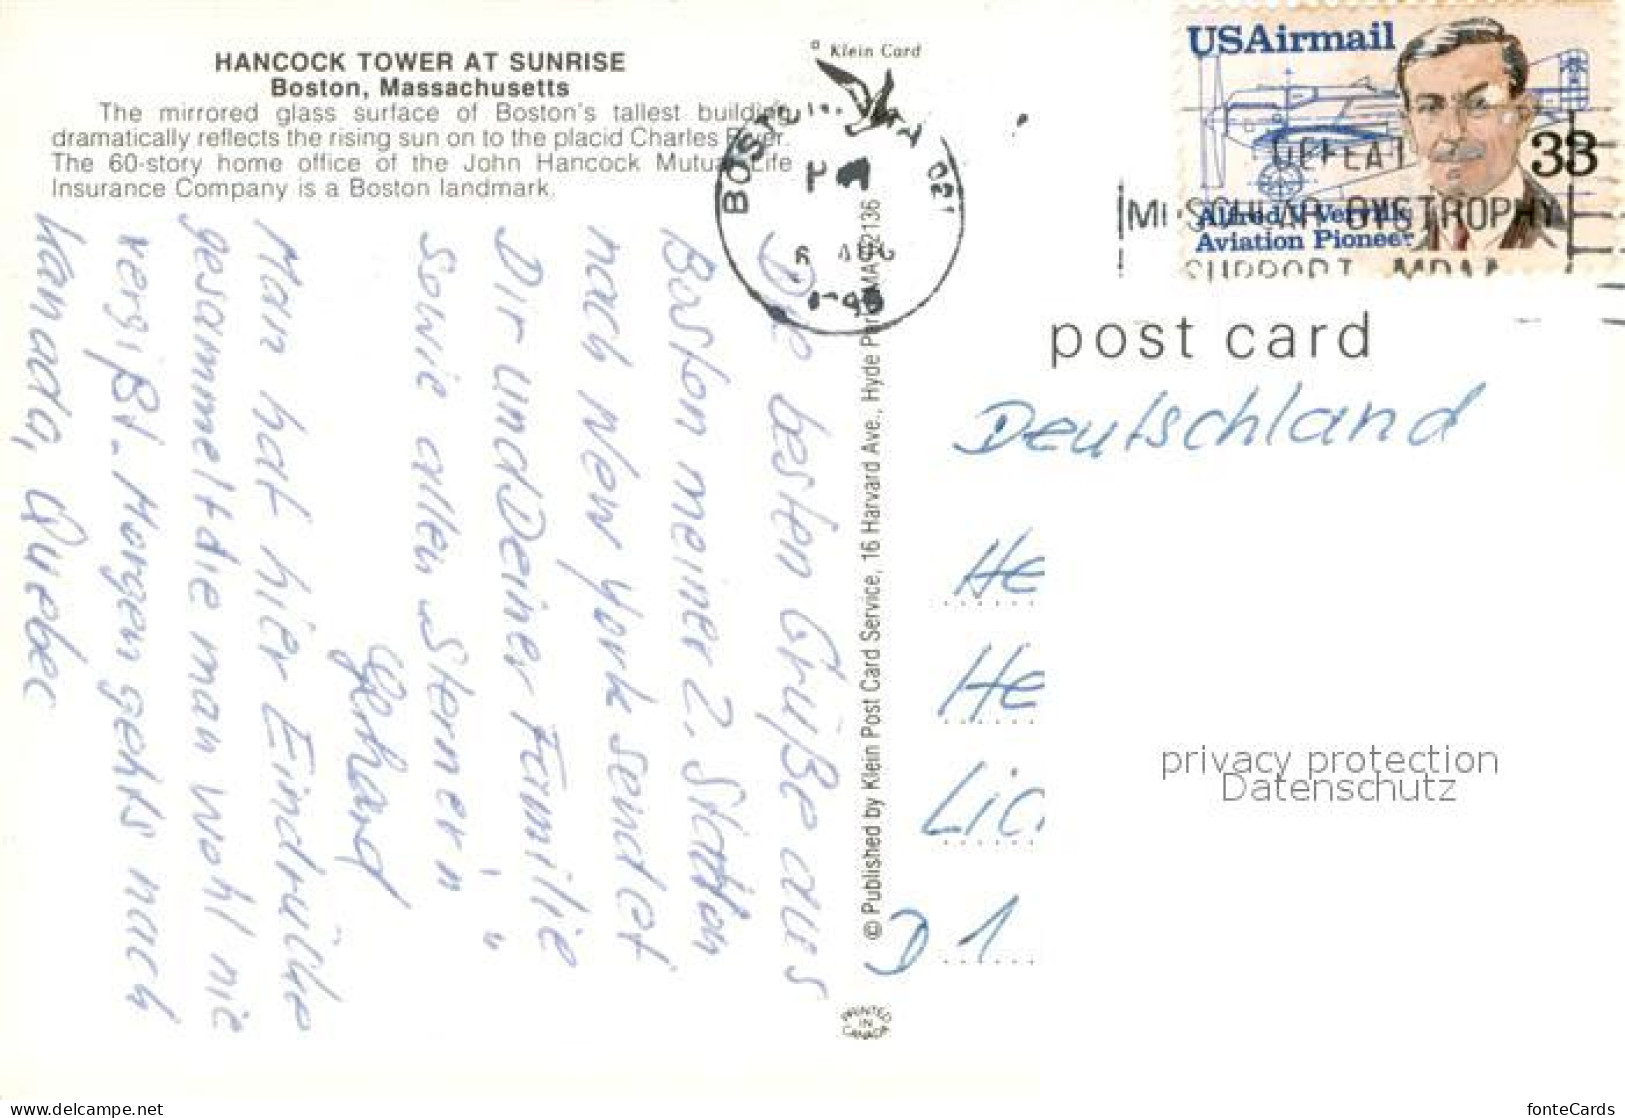 HANCOCK TOWER AT SUNRISE
Boston, Massachusetts
The mirrored glass surface of Boston's tallest building
dramatically reflects the rising sun on to the placid Charles River.
The 60-story home office of the John Hancock Mutual Life
Insurance Company is a Boston landmark.
© Klein Card
BOSTON, MA 021
PM
6 AUG
USAirmail
33
Alfred V. Verville
Aviation Pioneer
DEFEAT
MUSCULAR DYSTROPHY
SUPPORT MDA
post card
Deutschland
He
He
Lic
D 1
privacy protection
Datenschutz
© Published by Klein Post Card Service, 16 Harvard Ave., Hyde Park, MA 02136
PRINTED
IN
CANADA
Die besten Grüße aus
Boston meiner 2. Station
nach New York sendet
Dir und Deiner Familie
sowie allen "Sternler'n"
Gerhard
Man hat hier Eindrücke
gesammelt die man wohl nie
vergißt. Morgen geht's nach
Kanada, Quebec
fonteCards
www.delcampe.net